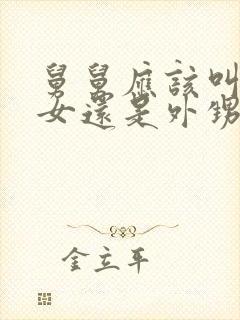 舅舅應該叫
女還是外甥
金立平